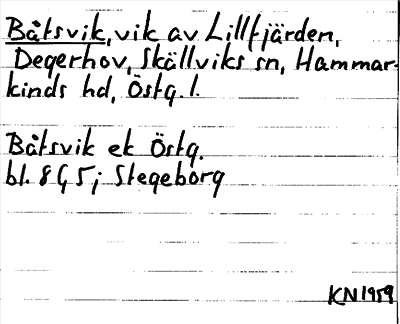 Båtsvik, vik av Lillfjärden,
Degerhov, Skällviks sn, Hammar-
kinds hd, Östg. l.
Båtsvik ek Östg.
bl. 8G5; Stegeborg
KN 1959